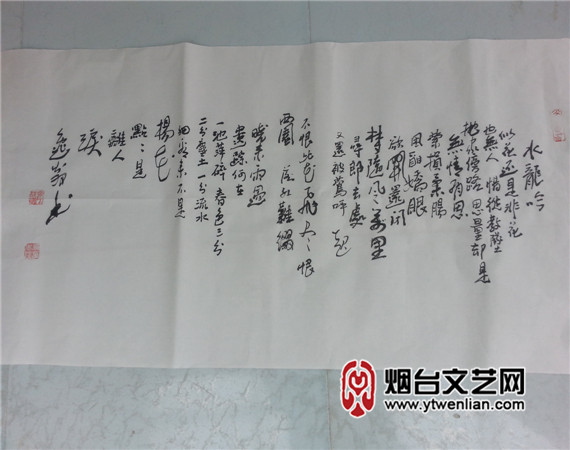 水龍吟
似花還是非花
也無人惜從教墜
拋家傍路思量却是
無情有思
縈損柔腸
困酣嬌眼
欲開還閉
夢隨風万里
尋郎去處
又還被鶯呼起
不恨此花飛尽恨
西園落紅難綴
曉来雨過
遺踪何在
一池萍碎春色三分
二分塵土一分流水
細看来不是
楊花
點點是
離人
淚
烟台文艺网
www.ytwenlian.com